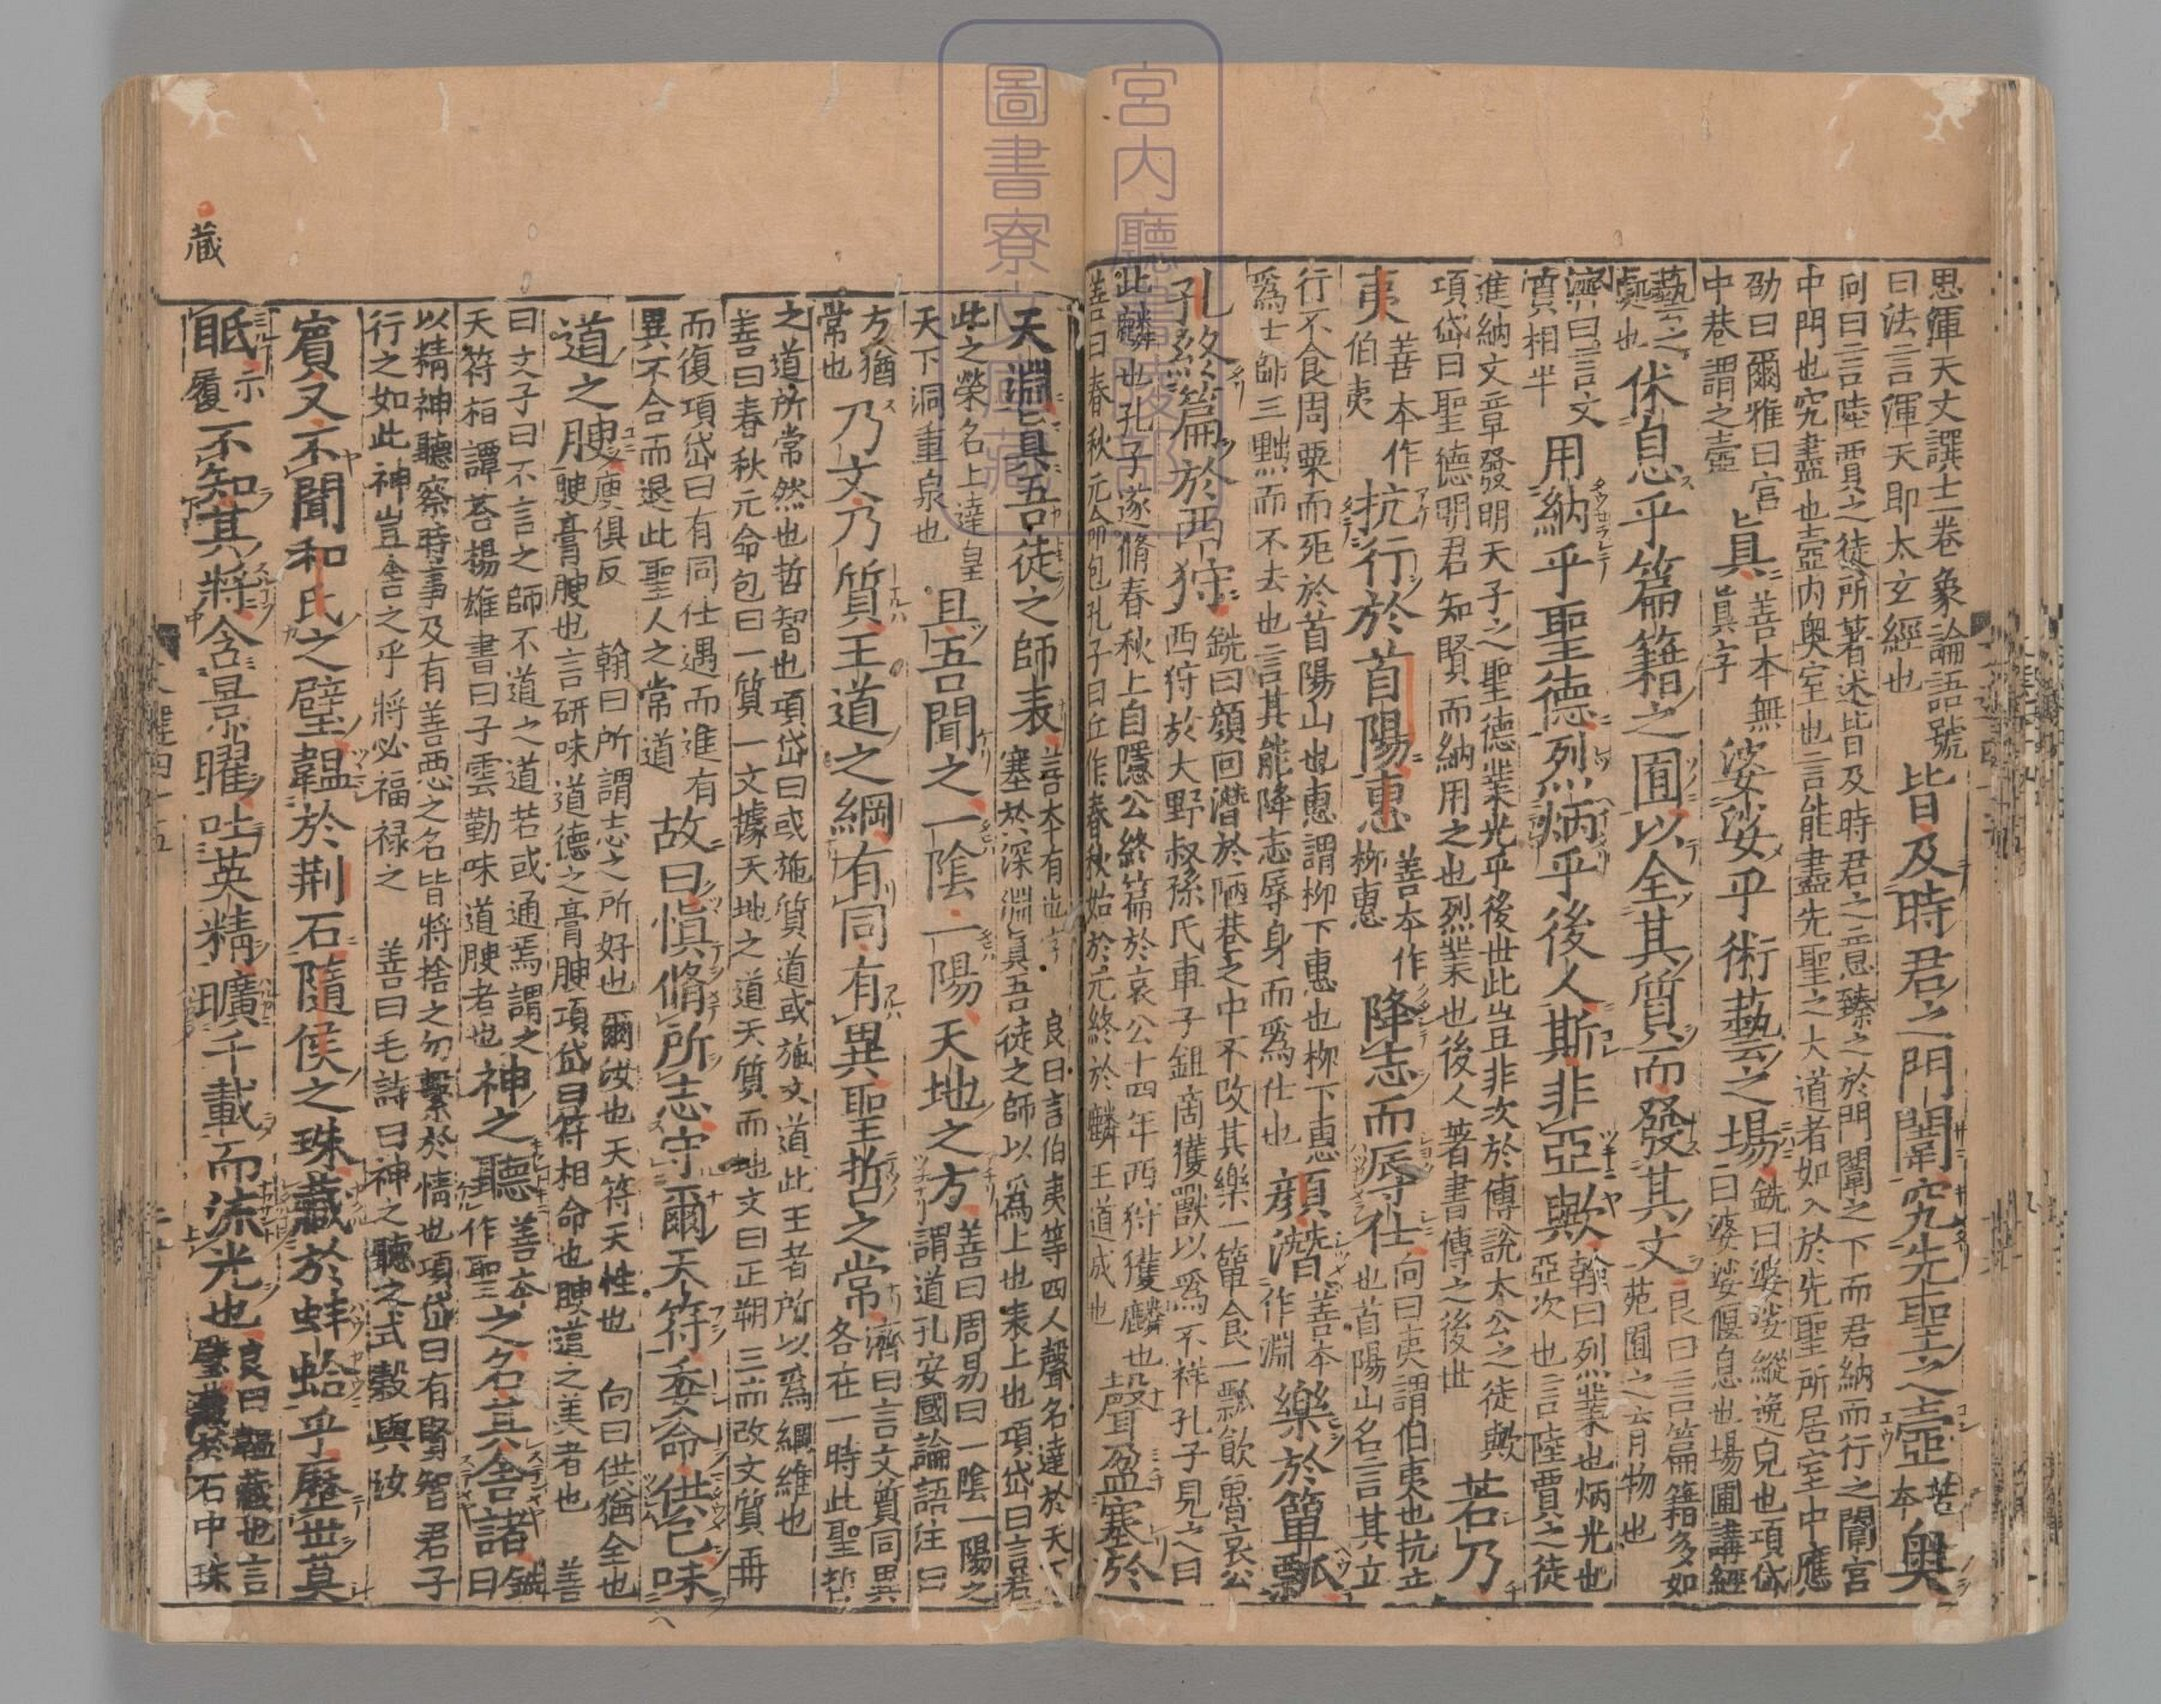 思渾天文譔士二卷象論語號
曰法言渾天即太玄經也
皆及時君之門闈究先聖之壼善本奧
向曰言陸賈之徒所著述皆曰及時君之意臻之於門闈之下而君納而行之闈宮
中門也究盡也壼內奧室也言能盡先聖之大道者如入於先聖所居室中應
劭曰爾雅曰宮
中巷謂之壼
眞善本無眞字婆娑乎術藝之場
銑曰婆娑縱逸皃也項岱
曰婆娑偃息也場圃講經
藝之
處也
休息乎篇籍之囿以全其質而發其文
良曰言篇籍多如
苑囿之有物也
濟曰言文
質相半
用納乎聖德烈炳乎後人斯非亞歟
翰曰烈業也炳光也
亞次也言陸賈之徒
進納文章發明天子之聖德業光乎後世此豈非次於傅說太公之徒歟
項岱曰聖德明君知賢而納用之也烈業也後人著書傳之後世
若乃
夷善本作伯夷抗行於首陽惠善本作柳惠降志而辱仕
向曰夷謂伯夷也抗立
也首陽山名言其立
行不食周粟而死於首陽山也惠謂柳下惠也柳下惠
爲士師三黜而不去也言其能降志辱身而爲仕也
顏潛善本作淵樂於簞瓢
孔子終篇於西狩
銑曰顏回潛於陋巷之中不改其樂一簞食一瓢飲魯哀公
西狩於大野叔孫氏車子鉏商獲獸以爲不祥孔子見之曰
此麟也孔子遂脩春秋上自隱公終篇於哀公十四年西狩獲麟也
善曰春秋元命包孔子曰丘作春秋始於元終於麟王道成也
聲盈塞於
天淵眞吾徒之師表善本有也字
良曰言伯夷等四人聲名達於天下
塞於深淵眞吾徒之師以爲上也表上也項岱曰言君
此之榮名上達皇
天下洞重泉也
且吾聞之一陰一陽天地之方
善曰周易曰一陰一陽之
謂道孔安國論語注曰
方猶
常也
乃文乃質王道之綱有同有異聖哲之常
濟曰言文質同異
各在一時此聖哲
之道所常然也哲智也項岱曰或施質道或施文道此王者所以爲綱維也
善曰春秋元命包曰一質一文據天地之道天質而地文曰正朔三而改文質再
而復項岱曰有同仕遇而進有
異不合而退此聖人之常道
故曰愼脩所志守爾天符委命供己味
道之腴庾俱反
翰曰所謂志之所好也爾汝也天符天性也 向曰供猶全也
腴膏腴也言研味道德之膏腴項岱曰符相命也腴道之美者也 善
曰文子曰不言之師不道之道若或通焉謂之
天符桓譚荅楊雄書曰子雲勤味道腴者也
神之聽善本作聖之之名其舍諸銑曰
以精神聽察時事及有善惡之名皆將捨之勿繫於情也項岱曰有賢智君子
行之如此神豈舍之乎將必福祿之 善曰毛詩曰神之聽之式穀與汝
賓又不聞和氏之璧韞於荆石隨侯之珠藏於蚌蛤乎歷世莫
眡示履不知其將含景曜吐英精曠千載而流光也
良曰韞藏也言
璧藏於石中珠
藏
宮内廳書陵部
圖書寮文庫藏